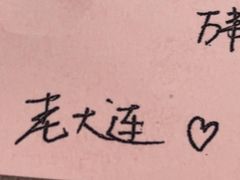 万
老大连 ♡